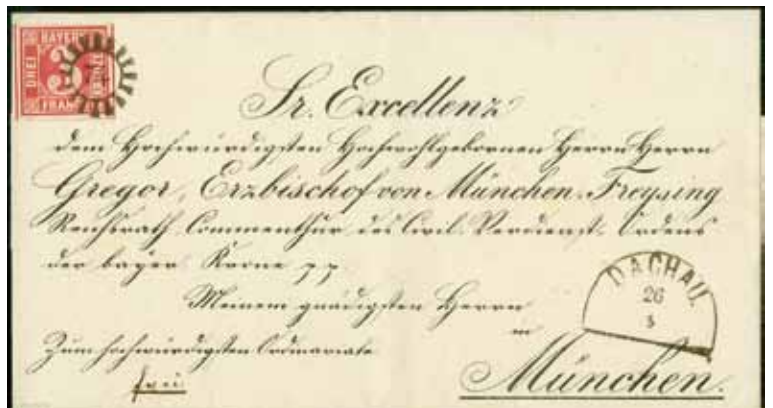 BAYERN
DREI 3 KREUZER
FRANCO
Sr. Excellenz
dem Hochwürdigsten Hochwohlgebornen Herrn Herrn
Gregor, Erzbischof von München-Freysing
Reichsrath, Commenthur des Civil-Verdienst-Ordens
der bayer. Krone p p
Meinem gnädigsten Herrn
in
DACHAU.
26
3
Zum hochwürdigsten Ordinariate
München.
frei